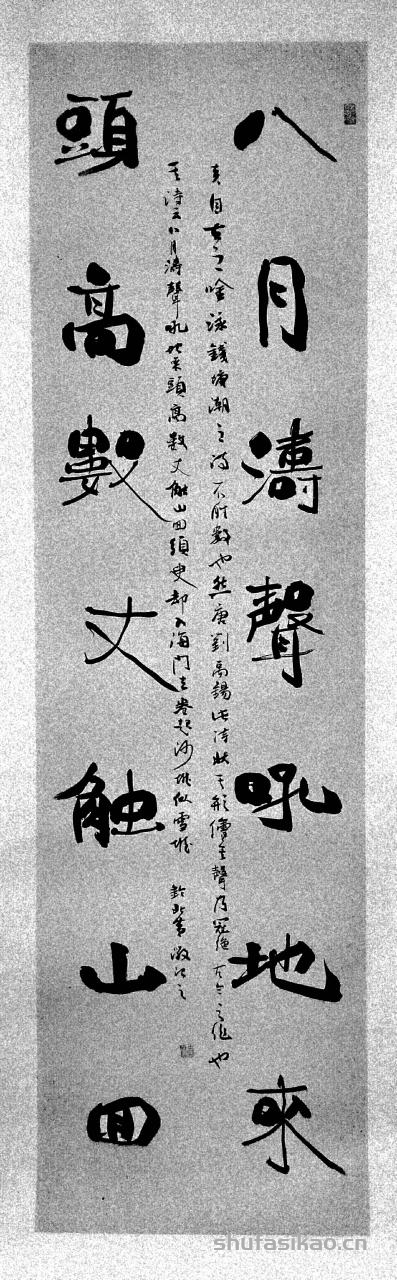 八月濤聲吼地來
自古之唫詠錢塘潮之詩不勝數也然唐劉禹錫此詩狀其形繪其聲乃冠絕古今之作也
其詩云八月濤聲吼地來頭高數丈触山回須臾却入海門去卷起沙堆似雪堆
頭高數丈触山回
shufasikao.cn